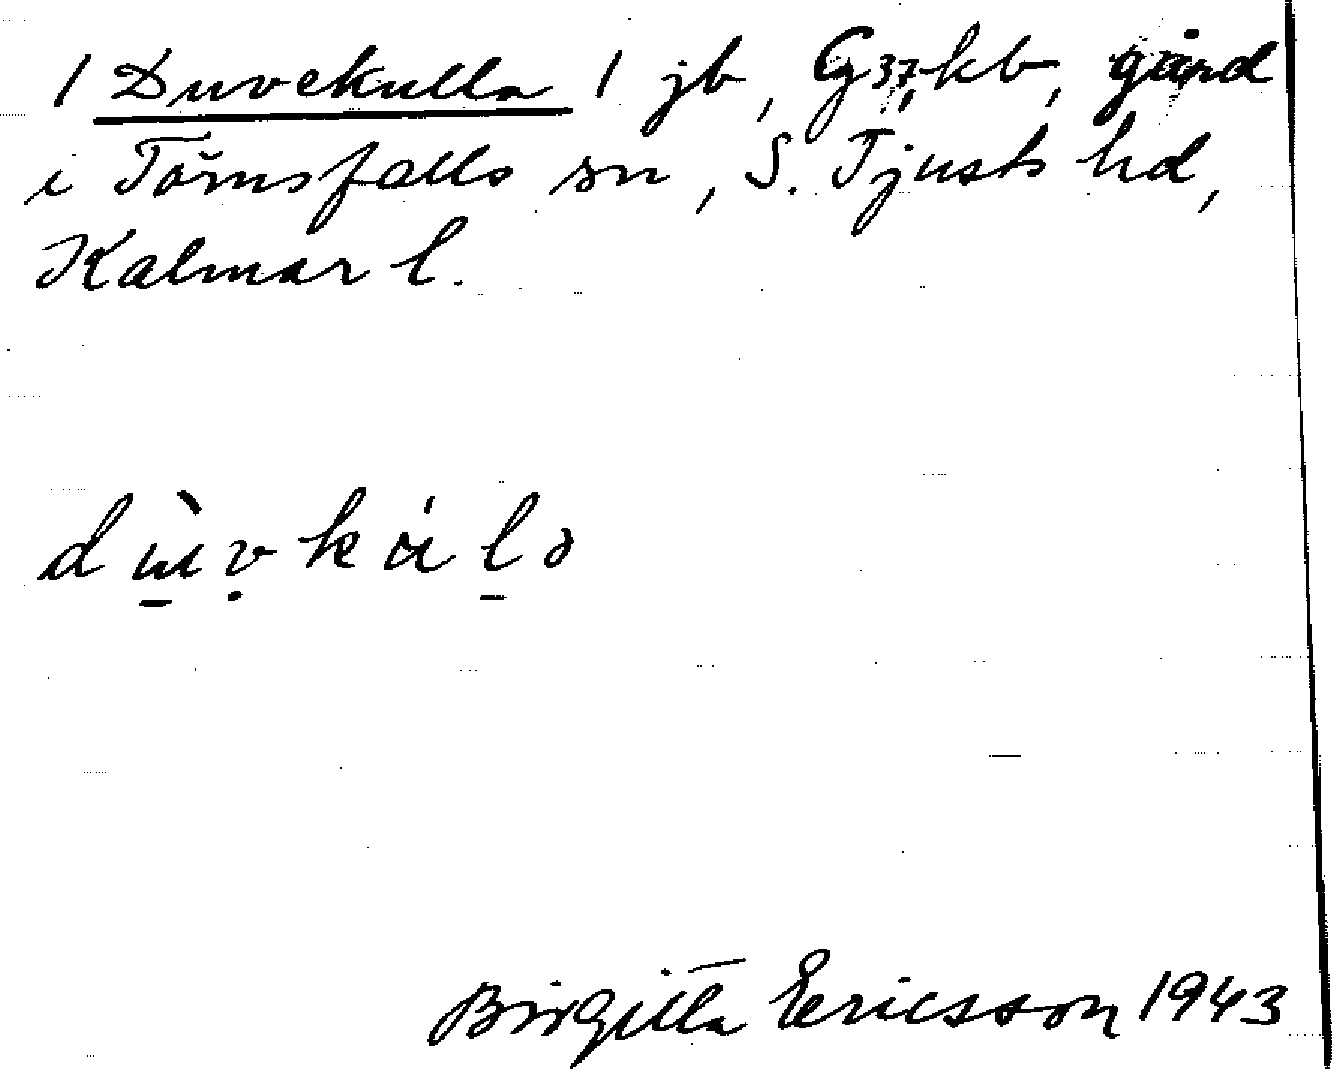 / Duvekulla / jb, G37, kb, gård
i Törnsfalls sn, S. Tjusts hd,
Kalmar l.
Birgitta Ericsson 1943